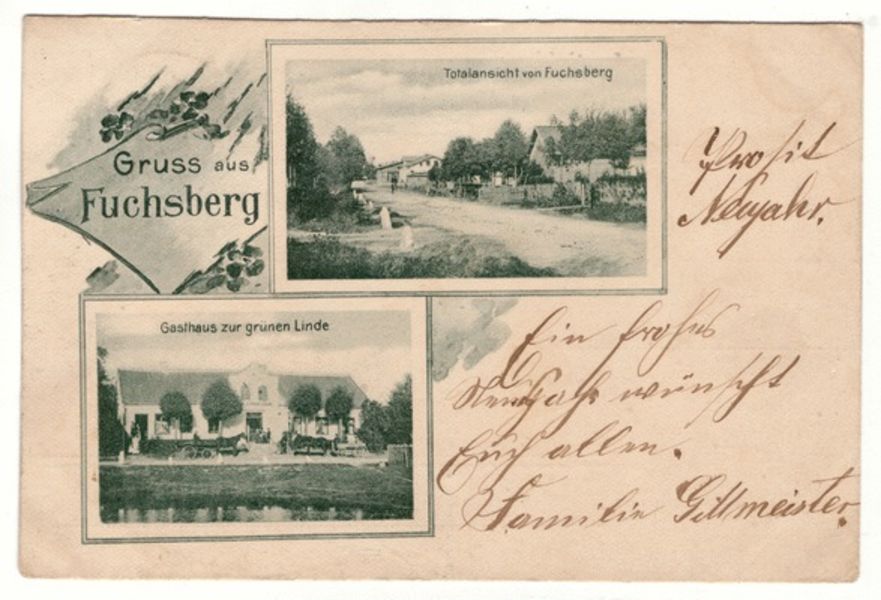 Gruss aus
Fuchsberg
Totalansicht von Fuchsberg
Gasthaus zur grünen Linde
Prosit
Neujahr.
Ein frohes
Neujahr wünscht
Euch allen.
Familie Gillmeister.